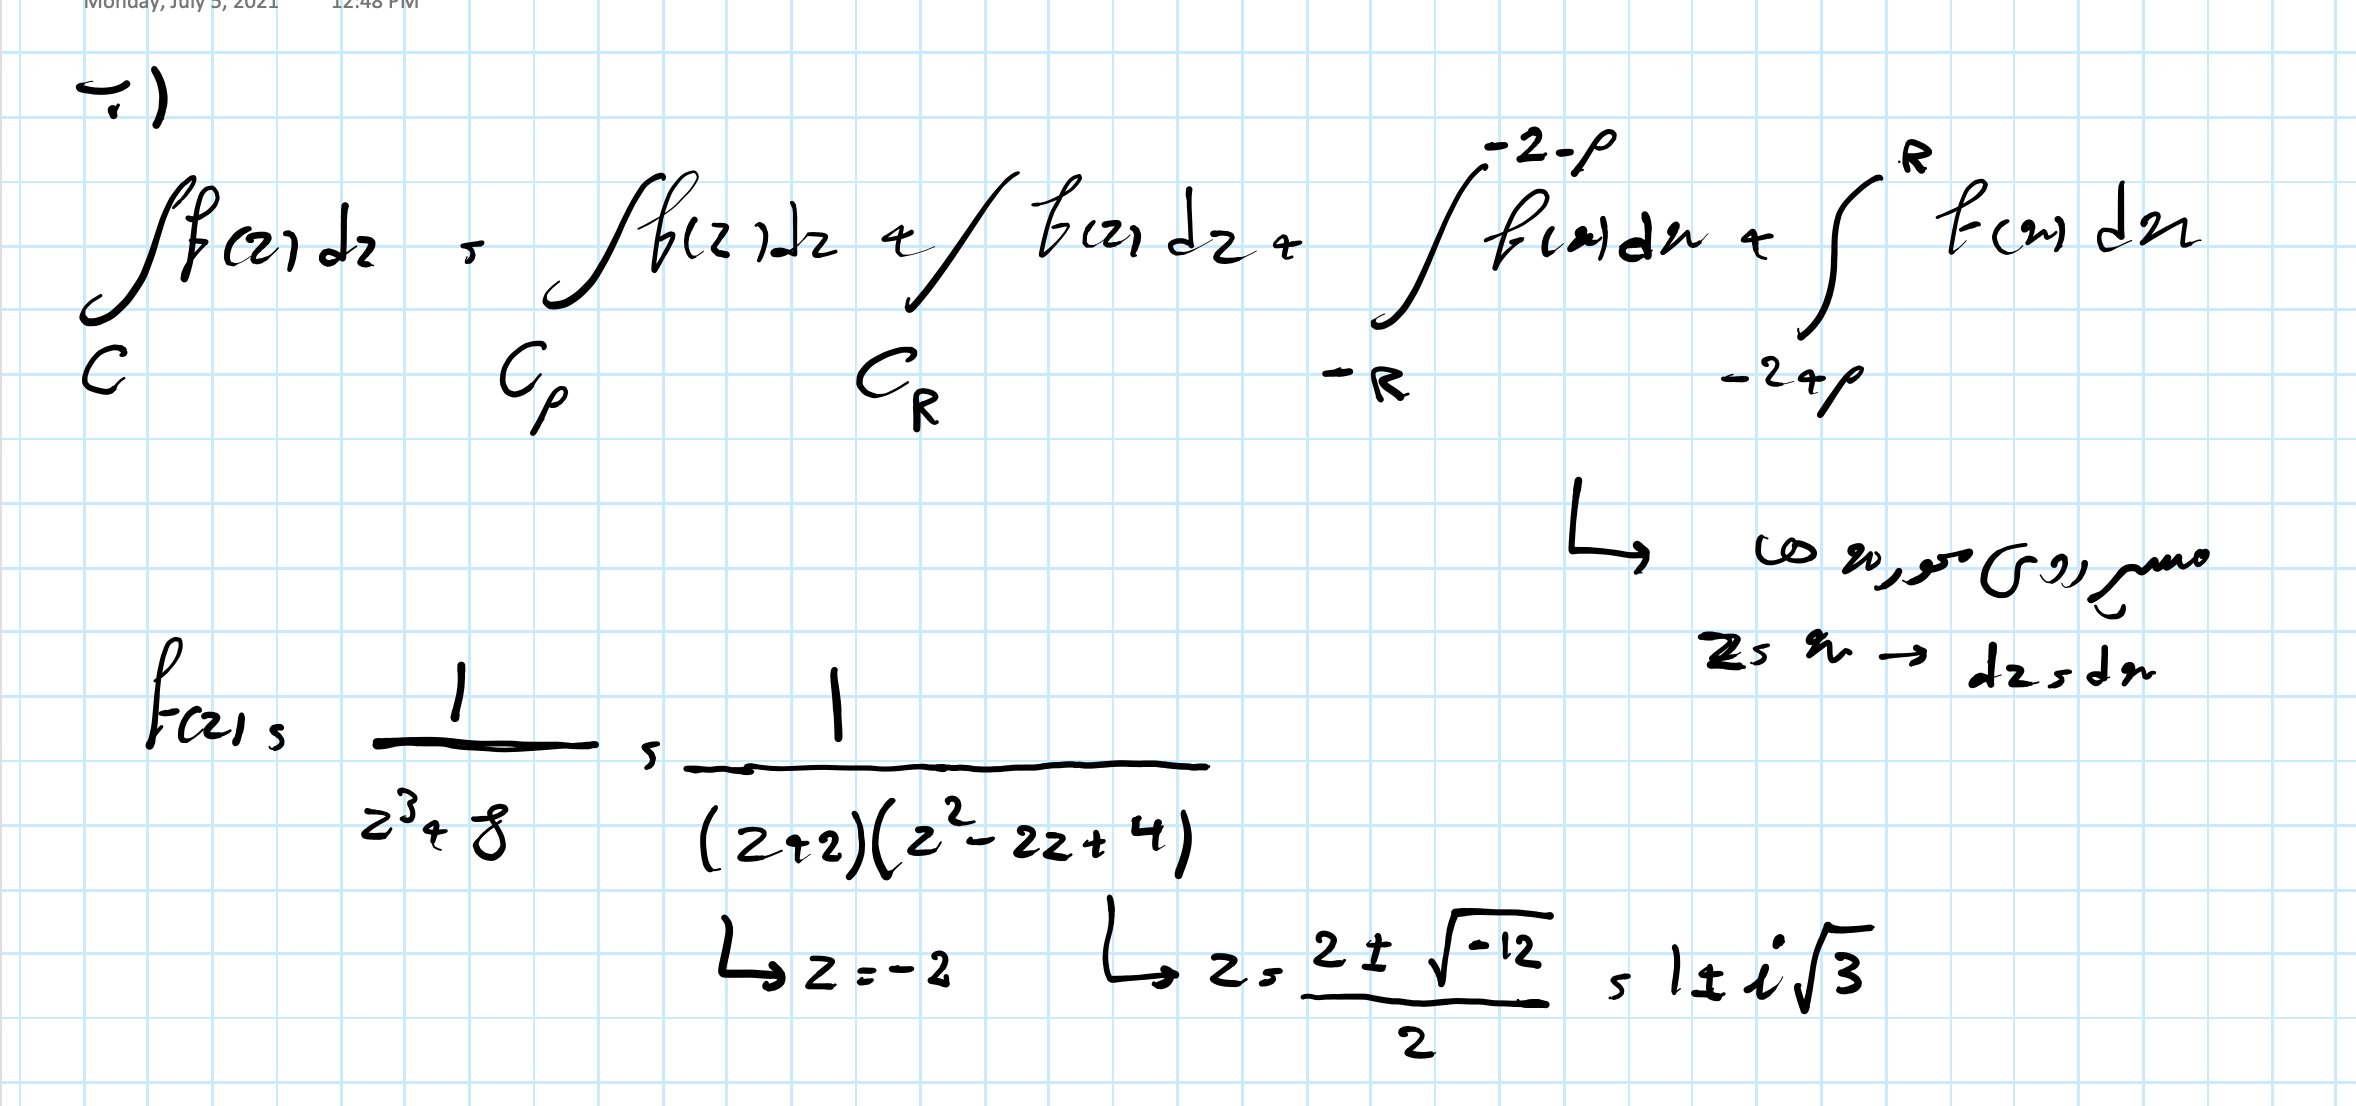 Monday, July 5, 2021 12:48 PM
ب)
∫_C f(z) dz = ∫_{C_ρ} f(z) dz + ∫_{C_R} f(z) dz + ∫_{-R}^{-2-ρ} f(x) dx + ∫_{-2+ρ}^{R} f(x) dx
z = x → dz = dx
f(z) = 1/(z³ + 8) = 1/((z+2)(z² - 2z + 4))
↳ z = -2 ↳ z = (2 ± √-12)/2 = 1 ± i√3